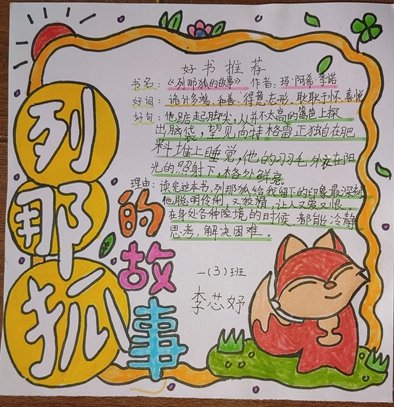 好书推荐
书名：《列那狐的故事》 作者：玛·阿希·季诺
好词：诡计多端、和善、得意忘形、耿耿于怀、喜悦
好句：他踮起脚尖，从并不太高的篱笆上探
出脑袋，望见向桂格雷正独自在肥
料堆上睡觉，他的羽毛外衣在阳
光的照射下，格外鲜亮
理由：读完这本书，列那狐给我们留下的印象最深刻，
他聪明伶俐，又狡猾，让人又爱又恨
在身处各种险境的时候，都能冷静
思考，解决困难
一(3)班
李芯妤
列那狐
的故事